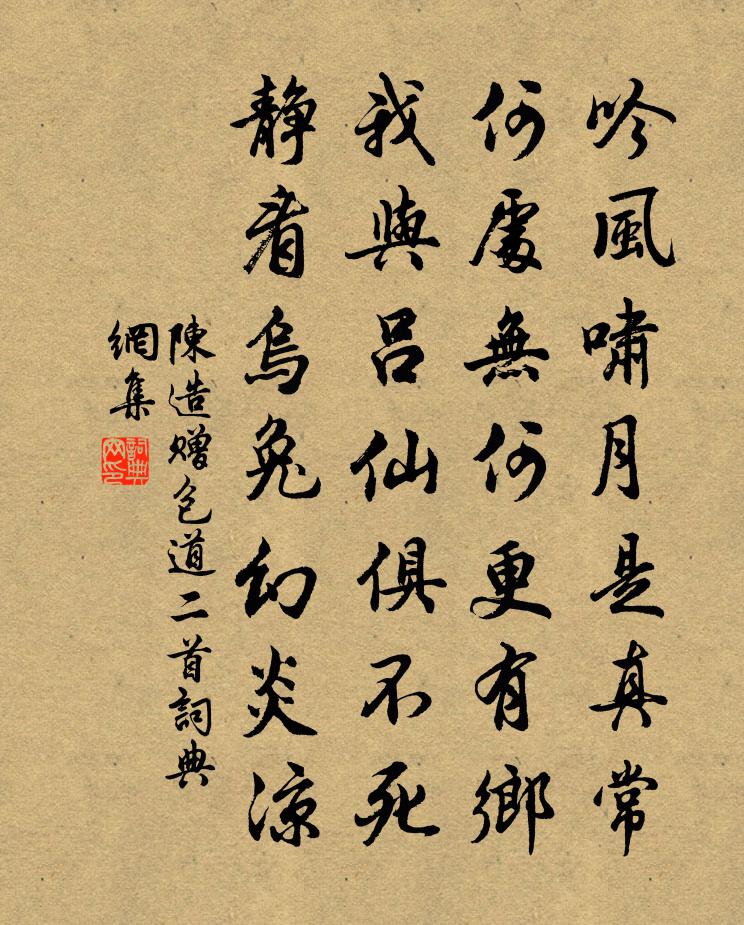 吟風嘯月是真常
何處無何更有鄉
我與呂仙俱不死
静看烏兔幻炎涼
陳造贈包道二首詞典
網集
詞典網印